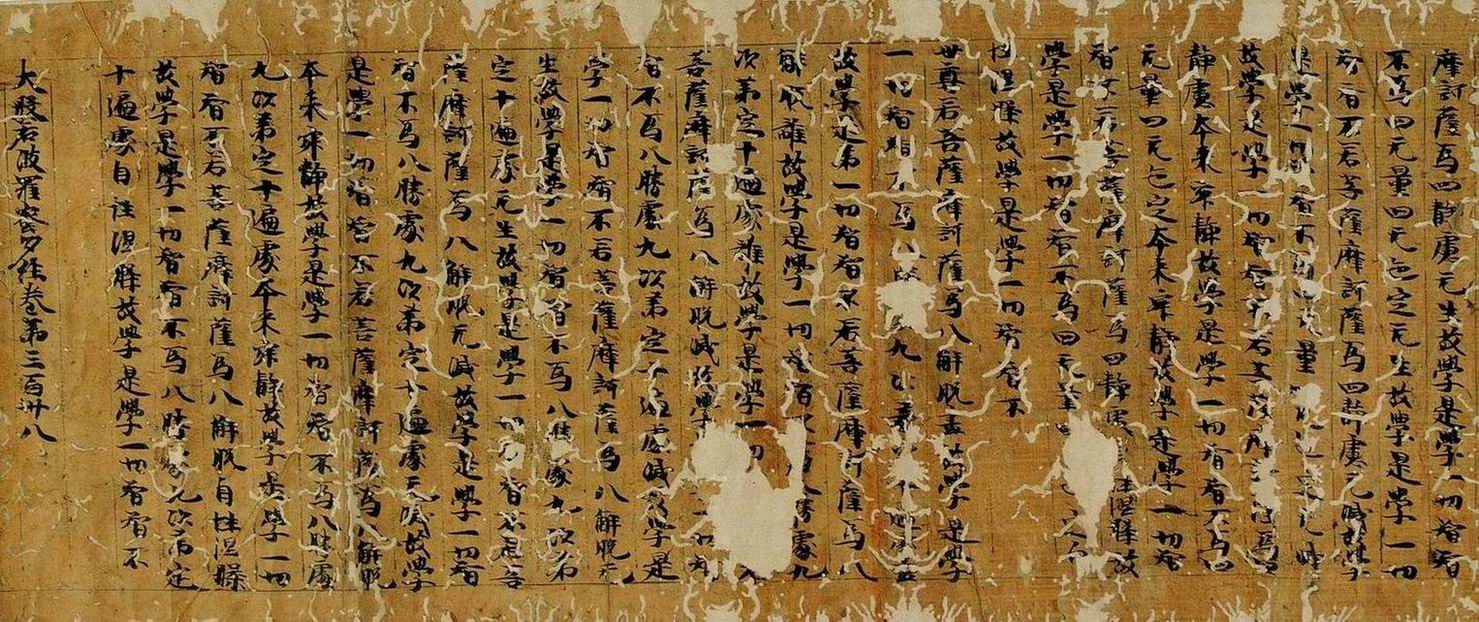 摩訶薩為四静慮无生故學是學一切智智
不為四无量四无色定无生故學是學一切
智智不若菩薩摩訶薩為四静慮无滅故學
是學一切智智不為四无量
故學是學一切智智不若菩薩摩訶薩為四
静慮本来寂静故學是學一切智智不為四
无量四无色定本来寂静故學是學一切智
智不若菩薩摩訶薩為四静慮性涅槃故
學是學一切智智不為四无量四
性涅槃故學是學一切智智不
世尊若菩薩摩訶薩為八解脫盡故學是學
一切智智不為八勝九次第
故學是學一切智智不若菩薩摩訶薩為八
解脫離故學是學一切智智不八勝處九
次第定十遍處離故學是學一切
菩薩摩訶薩為八解脫滅故學一切智
智不為八勝處九次第定十遍處滅故學是
學一切智智不若菩薩摩訶薩為八解脫无
生故學是學一切智智不為八勝處九次第
定十遍處无生故學是學一切智智不若菩
薩摩訶薩為八解脫无滅故學是學一切智
智不為八勝處九次第定十遍處无滅故學
是學一切智智不若菩薩摩訶薩為八解脫
本来寂静故學是學一切智智不為八勝處
九次第定十遍處本来寂静故學是學一切
智智不若菩薩摩訶薩為八解脫自性涅槃
故學是學一切智智不為八勝處九次第定
十遍處自性涅槃故學是學一切智智不
大般若波羅蜜多經卷第三百卅八